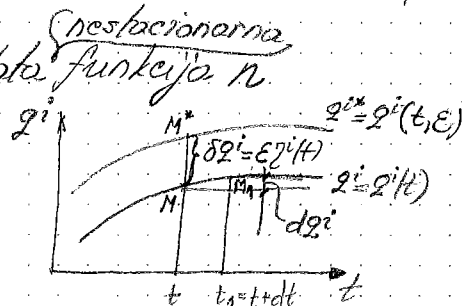 nestacionarna
funkcija n
qⁱ
M*
qⁱ* = qⁱ(t,ε)
δqⁱ = εηⁱ(t)
M
M₁
qⁱ = qⁱ(t)
dqⁱ
t
t₁ = t + dt
t